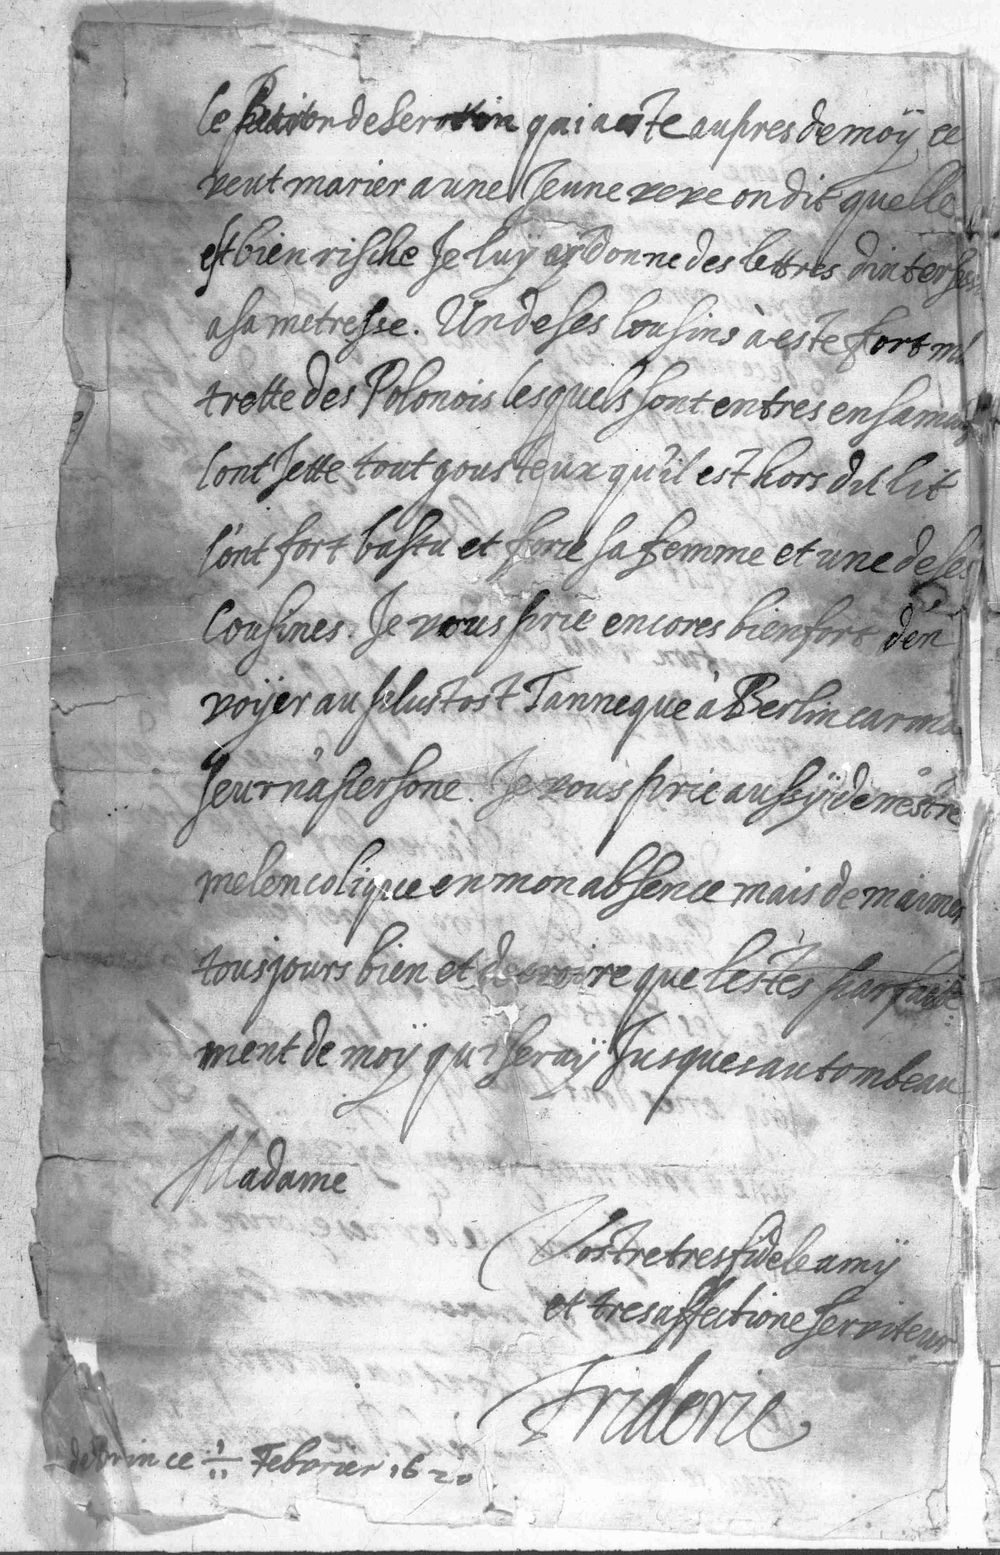 le Baron de Serotin qui a este aupres de moÿ ce
veut marier a une Jeune veve on dit quelle
est bien rische Je luÿ aÿ donne des lettres
a sa metresse. Un de ses Cousins à este fort
trette des Polonois lesquels sont entres en sa
lont Jette tout gousteux qu'il est hors du lit
l'ont fort bastu et force sa femme et une de ses
Cousines. Je vous prie encores bien fort den
voÿer au plustost Tanneque à Berlin car ma
Seur n'a persone. Je vous prie aussÿ de nestre
melencolique en mon absence mais de maimer
tousjours bien et de croire que lestes parfaite
ment de moÿ qui seraÿ Jusques au tombeau
Madame
Vostre tres fidele amÿ
et tres affectione serviteur
Frideric
de Brin ce 1/11 Febvrier 1620